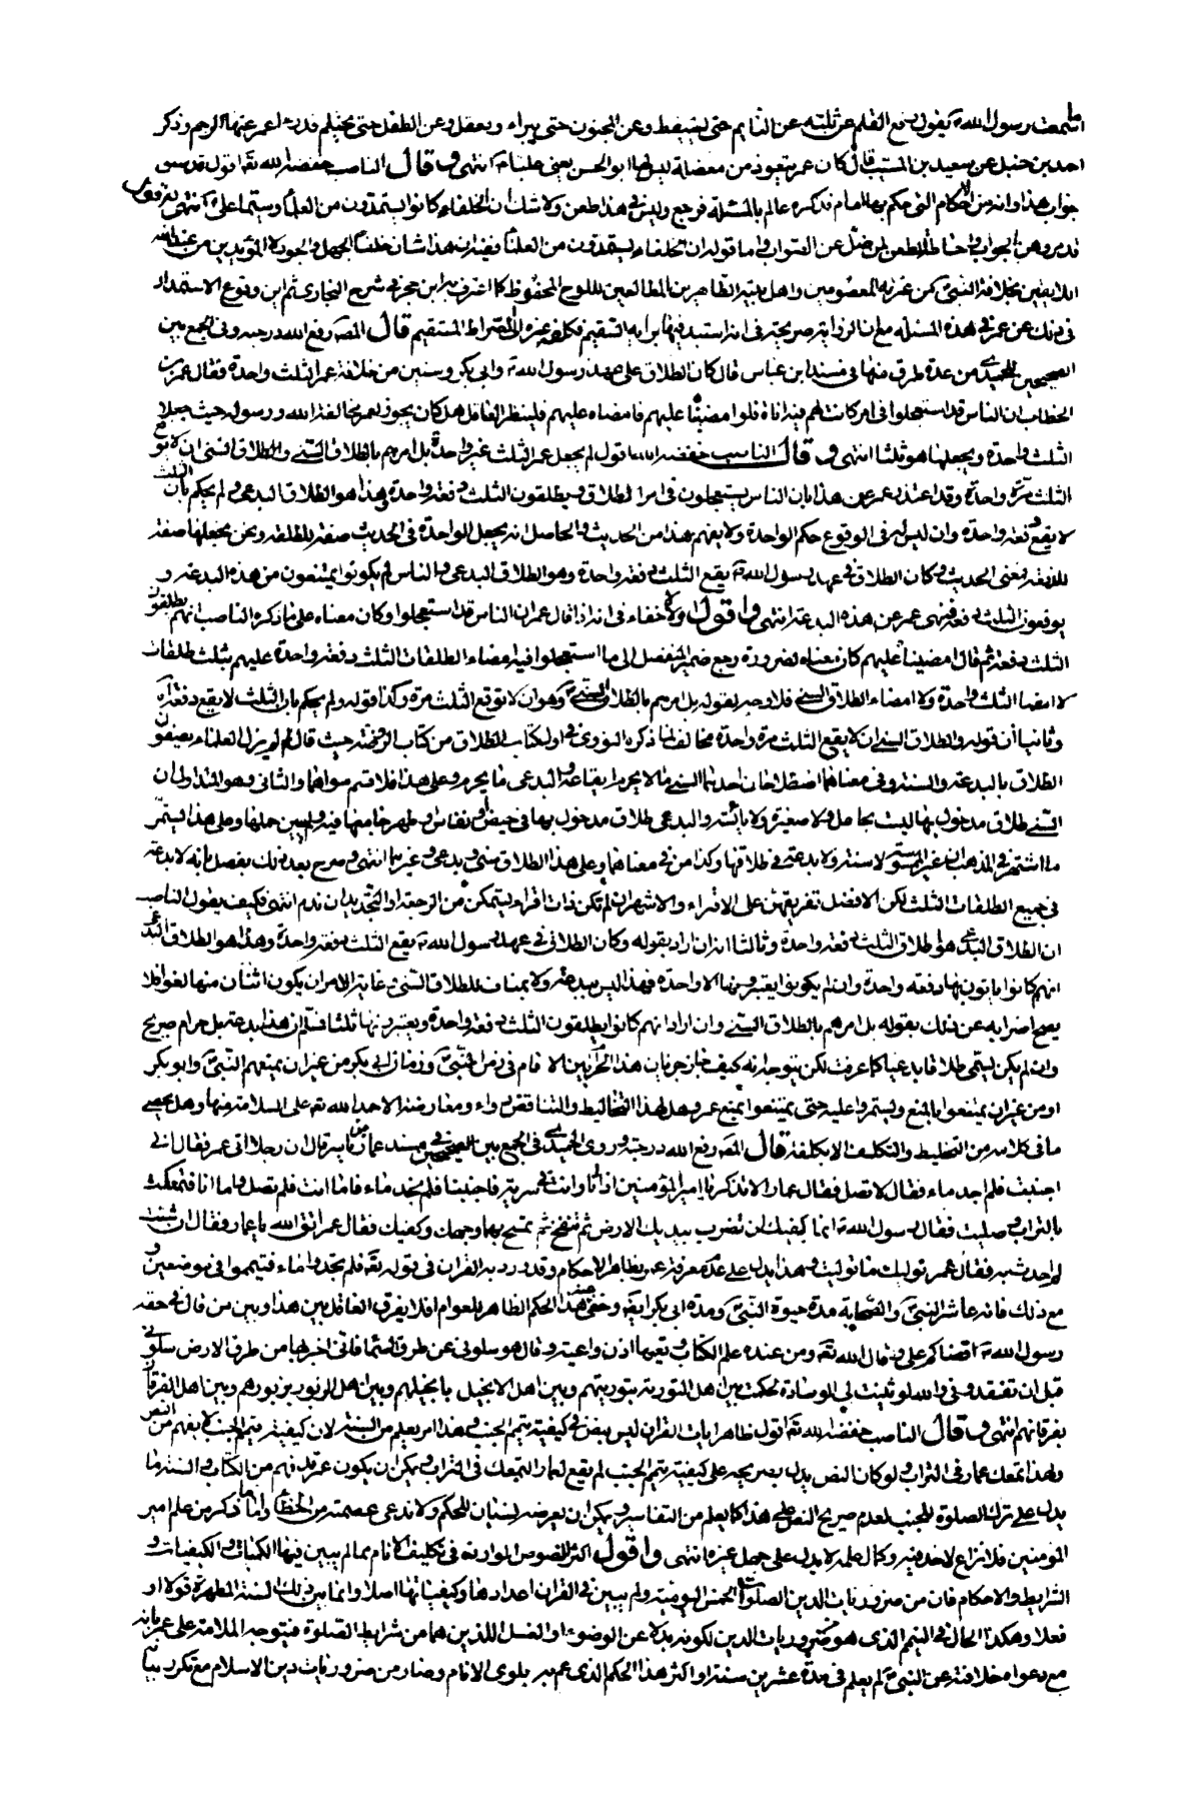 اما سمعت رسول الله ص يقول رفع القلم عن ثلثة عن النايم حتى يستيقظ وعن المجنون حتى يبراء ويعقل وعن الطفل حتى يحتلم فدرء عمر عنها الرجم وذكر
احمد بن حنبل عن سعيد بن المسيب قال كان عمر يتعوذ من معضلة ليس لها ابو الحسن يعنى عليا ع انتهى وقال الناصب خفضه الله تع اقول قد سبق
جواب هذا وانه من الاحكام التى حكم بها الامام فذكره عالم بالمسئلة فرجع وليس فى هذا طعن ولا شك ان الخلفاء كانوا يستمدون من العلماء وسيما على ع انتهى
الجواب فى احتاط الطعن لمن ضل عن الصواب واما قوله ان الخلفاء يستمدون من العلماء ففيه ان هذا شان خلفاء الجهل والجور لا المؤيدين من عند الله
اللايقين بخلافة النبى ص من عترته المعصومين واهل بيته الطاهرين المطالعين للوح المحفوظ كما اعترف به ابن حجر فى شرح البخارى ثم اين وقوع الاستمداد
فى ذلك عن عمر فى هذه المسئلة مع ان الرواية صريحة فى انه استبد فيها برايه السقيم فكلفه غيره الى الصراط المستقيم قال المص رفع الله درجته وفى الجمع بين
الصحيحين للحميدى من عدة طرق منها فى مسند ابن عباس قال كان الطلاق على عهد رسول الله ص وابى بكر وسنتين من خلافة عمر الثلث واحدة فقال عمر بن
الخطاب ان الناس قد استعجلوا فى امر كانت لهم فيه اناة فلو امضيناه عليهم فامضاه عليهم فلينظر العاقل هل كان يجوز لعمر مخالفة الله ورسوله حيث جعلا
الثلث واحدة ويجعلها هو ثلثا انتهى وقال الناصب خفضه الله اقول لم يجعل عمر الثلث غير واحدة بل امرهم بالطلاق السنى والطلاق السنى ان لا توقع
الثلث مرة واحدة وقد اعتذر عمر عن هذا بان الناس يستعجلون فى امر الطلاق ويطلقون الثلث دفعة واحدة وهذا هو الطلاق البدعى ولم يحكم بان الثلث
لا يقع دفعة واحدة وان ليس له فى الوقوع حكم الواحدة ولا يفهم هذا من الحديث والحاصل انه يجعل الواحدة فى الحديث صفة للطلقة ونحن نجعلها صفة
للدفعة فمعنى الحديث كان الطلاق فى عهد رسول الله ص يقع الثلث دفعة واحدة وهو الطلاق البدعى والناس لم يكونوا يمتنعون من هذه البدعة و
يوقعون الثلث دفعة فنهى عمر عن هذه البدعة انتهى واقول اولا لا خفاء فى انه اذا قال عمر ان الناس قد استعجلوا وكان معناه على ما ذكره الناصب انهم يطلقون
الثلث دفعة ثم قال امضيناه عليهم كان معناه لضرورة رجع ضمير المنفصل الى ما استعجلوا فيه امضاء الطلقات الثلث دفعة واحدة عليهم بثلث طلقات
لا امضاء الثلث واحدة ولا امضاء الطلاق السنى فلا وجه لقوله بل امرهم بالطلاق السنى وهو ان لا توقع الثلث مرة وكذا قوله ولم يحكم بان الثلث لا يقع دفعة اه
وثانيا ان قوله والطلاق السنى ان لا يقع الثلث مرة واحدة مخالف لما ذكره النووى فى اول كتاب الطلاق من كتاب الروضة حيث قال لم يزل العلماء يصفون
الطلاق بالبدعة والسنة وفى معناهما اصطلاحان احدهما السنى ما لا يحرم ايقاعه والبدعى ما يحرم وعلى هذا فلا قسم سواهما والثانى وهو المتداول ان
السنى طلاق مدخول بها ليست بحامل ولا صغيرة ولا يائسة والبدعى طلاق مدخول بها فى حيض او نفاس او طهر جامعها فيه ولم يتبين حملها وعلى هذا يستمر
ما اشتهر فى المذهب ان غير الممسوسة لا سنة ولا بدعة فى طلاقها وكذا من فى معناها وعلى هذا الطلاق سنى وبدعى وغيرهما انتهى وصرح بعد ذلك بفصل بانه لا بدعة
فى جميع الطلقات الثلث لكن الافضل تفريقهن على الاقراء والاشهر ان لم تكن ذات اقراء ليتمكن من الرجعة او التجديد ان ندم انتهى فكيف يقول الناصب
ان الطلاق البدعى هو طلاق الثلث دفعة واحدة وثالثا انه ان اراد بقوله وكان الطلاق فى عهد رسول الله ص يقع الثلث دفعة واحدة وهذا هو الطلاق البدعى
انهم كانوا ياتون بها دفعة واحدة وان لم يكونوا يعتبرونها الا واحدة فهذا ليس ببدعة ولا بمناف للطلاق السنى غاية الامر ان يكون اثنان منها لغوا فلا
يصح اضرابه عن ذلك بقوله بل امرهم بالطلاق السنى وان اراد انهم كانوا يطلقون الثلث دفعة واحدة ويعتبرونها ثلثا فسلم ان هذا بدعة بل حرام صريح
وان لم يكن ليسمى طلاقا بدعيا كما عرفت لكن يتوجه انه كيف جاز جريان هذا الحرام بين الانام فى زمن النبى ص وزمان ابى بكر من غير ان يمنعهم النبى ص وابو بكر
او من غير ان يمتنعوا بالمنع ويستمروا عليه حتى يمتنعوا بمنع عمر وهل لهذا التخاليط والتناقض دواء ومعارضة الاحد الله تع على السلامة منها وهل يحصى
ما فى كلامه من التخليط والتكليف الا بكلفة قال المص رفع الله درجته وروى الحميدى فى الجمع بين الصحيحين فى مسند عمار بن ياسر قال ان رجلا اتى عمر فقال انى
اجنبت فلم اجد ماء فقال لا تصل فقال عمار الا تذكر يا امير المؤمنين اذ انا وانت فى سرية فاجنبنا فلم نجد ماء فاما انت فلم تصل واما انا فتمعكت
بالتراب وصليت فقال رسول الله ص انما يكفيك ان تضرب بيديك الارض ثم تنفخ ثم تمسح بهما وجهك وكفيك فقال عمر اتق الله يا عمار فقال ان شئت
لم احدث به فقال عمر نوليك ما توليت وهذا يدل على عدم معرفة عمر بظاهر الاحكام وقد ورد به القران فى قوله تع فلم تجدوا ماء فتيمموا فى موضعين و
مع ذلك فانه عاشر النبى ص والصحابة مدة حيوة النبى ص ومدة ابى بكر ايضا وخفى عنه هذا الحكم الظاهر للعوام افلا يفرق العاقل بين هذا وبين من قال فى حقه
رسول الله ص اقضاكم على وقال الله تع ومن عنده علم الكتاب وتعيها اذن واعية وقال هو سلونى عن طرق السماء فانى اخبر بها من طرق الارض سلونى
قبل ان تفقدونى والله لو ثنيت لى الوسادة لحكمت بين اهل التورية بتوريتهم وبين اهل الانجيل بانجيلهم وبين اهل الزبور بزبورهم وبين اهل الفرقان
بفرقانهم انتهى وقال الناصب خفضه الله تع اقول ظاهر ايات القران ليس بنص فى كيفية تيمم الجنب وهذا امر يعلم من السنة لان كيفية تيمم الجنب لا يفهم من النص
ولهذا تمعك عمار فى التراب ولو كان النص يدل بصريحه على كيفية تيمم الجنب لم يقع لعمار التمعك فى التراب ويمكن ان يكون عمر قد فهم من الكتاب والسنة ما
يدل على ترك الصلوة للجنب لعدم صريح النص على هذا كما يعلم من التفاسير ويمكن ان تعرضه لنسيان الحكم ولا ندعى عصمته من الخطاء واما ما ذكر من علم امير
المؤمنين فلا نزاع لاحد فيه وكمال علمه لا يدل على جهل غيره انتهى واقول اكثر النصوص الواردة فى تكليف الانام بما لم يبين فيها الكميات والكيفيات و
الشرايط والاحكام فان من ضروريات الدين الصلوات الخمس اليومية ولم يبين فى القران اعدادها وكيفياتها اصلا وانما بين ذلك السنة المطهرة قولا او
فعلا وهكذا الحال فى التيمم الذى هو من ضروريات الدين لكونه بدلا عن الوضوء او الغسل اللذين هما من شرايط الصلوة فيتوجه الملامة على عمر بانه
مع دعواه خلافة عن النبى ص لم يعلم فى مدة عشرين سنة او اكثر هذا الحكم الذى عم به بلوى الانام وصار من ضروريات دين الاسلام مع تكرر بيانه